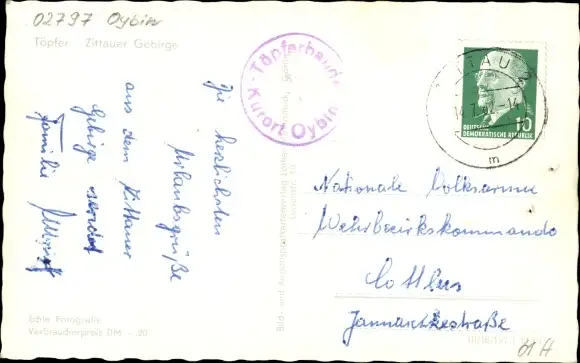 02797 Oybin
Töpfer Zittauer Gebirge
Töpferbaude
Kurort Oybin
ZITTAU 2
14.7.62-14
m
10
DEUTSCHE
DEMOKRATISCHE REPUBLIK
Die herzlichsten
Urlaubsgrüße
aus dem Zittauer
Gebirge sendet
Familie
Nationale Volksarmee
Wehrbezirkskommando
Cottbus
Echte Fotografie
Verbraucherpreis DM -.20
01 A